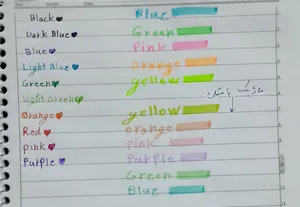 Black
Dark Blue
Blue
Light Blue
Green
Light Green
Orange
Red
Pink
Purple
Blue
Green
Pink
Orange
yellow
yellow
orange
pink
Purple
Green
Blue